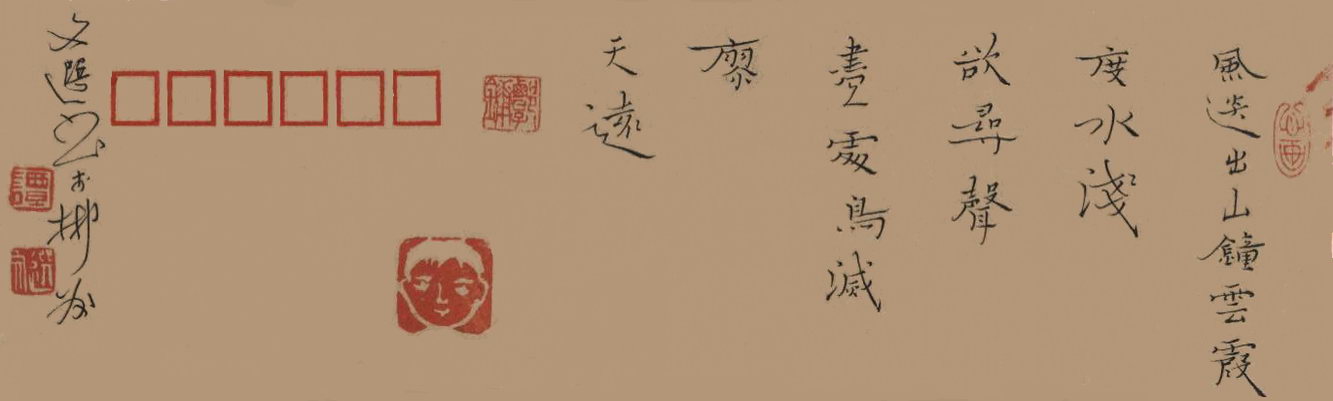 風送出山鐘雲霞
度水淺
欲尋聲
盡處鳥滅
廖
天遠
文選書於
譚